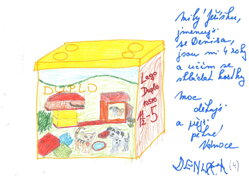 DUPLO
Lego
Duplo
1-5
milý Ježíšku,
jmenuji
se Denisa,
jsou mi 4 roky
a učím se
skládat kostky
moc
děkuji
a přeji
pěkné
Vánoce
DENISA (4)